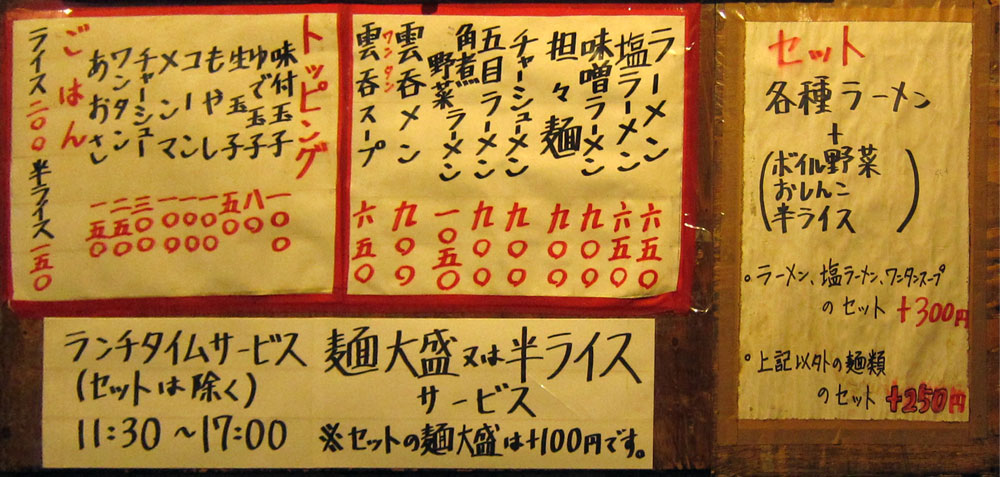 トッピング
味付玉子 一〇〇
ゆで玉子 八〇
生玉子 五〇
もやし 一〇〇
コーン 一〇〇
メンマ 一〇〇
チャーシュー 三〇〇
ワンタン 二五〇
あおさ 一五〇
ごはん
ライス 二〇〇 半ライス 一五〇
ラーメン 六五〇
塩ラーメン 六五〇
味噌ラーメン 九〇〇
担々麺 九〇〇
チャーシューメン 九〇〇
五目ラーメン 九〇〇
角煮野菜ラーメン 一〇五〇
ワンタン
雲呑メン 九〇〇
雲呑スープ 六五〇
セット
各種ラーメン
+
(ボイル野菜
おしんこ
半ライス)
。ラーメン、塩ラーメン、ワンタンスープ
のセット +300円
。上記以外の麺類
のセット +250円
ランチタイムサービス
(セットは除く)
11:30～17:00
麺大盛又は半ライス
サービス
※セットの麺大盛は+100円です。